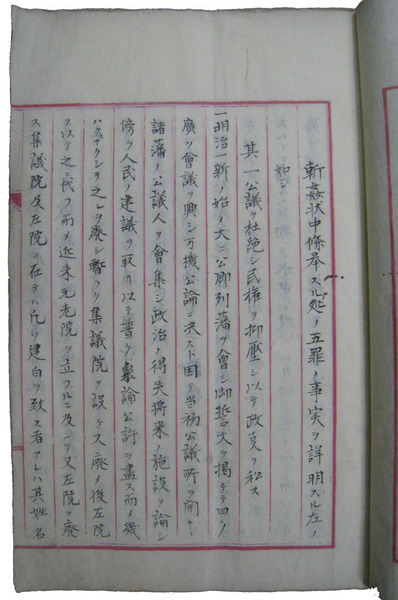 斬姦状中條挙スル処ノ五罪ノ事実ヲ詳明スル左ノ
如シ
其一公議ヲ杜絶シ民権ヲ抑壓シ以テ政夏ヲ私ス
一明治一新ノ始メ大ニ公卿列藩ヲ會シ御誓文ヲ掲ケテ曰ク
廣ク會議ヲ興シ万機公論ニ決スト因テ当初公議所ヲ開キ
諸藩ノ公議人ヲ會集シ政治ノ得失将来ノ施設ヲ論シ
傍ク人民ノ建議ヲ取リ以テ普ク衆論公許ヲ盡ス而メ幾
ハクナクシテ之レヲ廃シ暫ク集議院ヲ設ケ又ニ廃メ後左院
ヲ以テ之ニ代フ而メ近来元老院ヲ立フルニ及ンテ又左院ヲ廃
ス集議院及左院ニ在テハ凡ソ建白ヲ致ス者アレハ其姓名